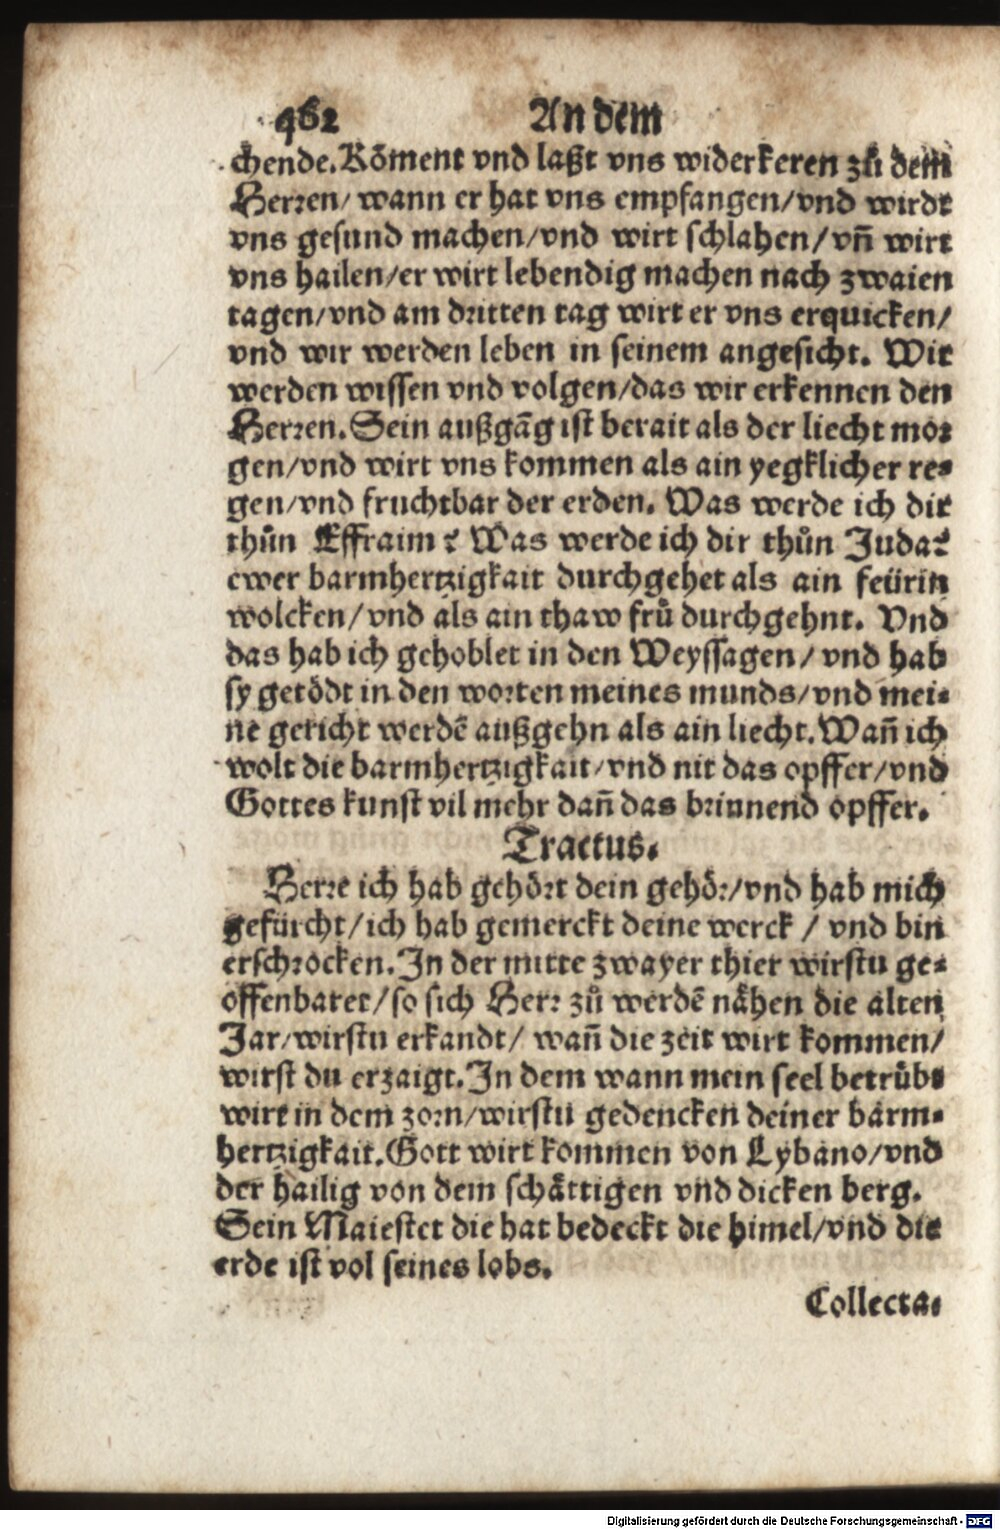 462 An dem
chende. Kōment vnd laßt vns widerkeren zů dem
Herren/ wann er hat vns empfangen/vnd wirdt
vns gesund machen/vnd wirt schlahen/ vñ wirt
vns hailen/er wirt lebendig machen nach zwaien
tagen/vnd am dritten tag wirt er vns erquicken/
vnd wir werden leben in seinem angesicht. Wir
werden wissen vnd volgen/das wir erkennen den
Herren. Sein außgāg ist berait als der liecht mor
gen/vnd wirt vns kommen als ain yegklicher re-
gen/vnd fruchtbar der erden. Was werde ich dir
thůn Effraim? Was werde ich dir thůn Juda?
ewer barmhertzigkait durchgehet als ain feürin
wolcken/ vnd als ain thaw frů durchgehnt. Vnd
das hab ich gehoblet in den Weyssagen/ vnd hab
sy getödt in den worten meines munds/vnd mei-
ne gericht werdē außgehn als ain liecht. Wañ ich
wolt die barmhertzigkait/vnd nit das opffer/vnd
Gottes kunst vil mehr dañ das brinnend opffer.
Tractus.
Herre ich hab gehört dein gehör/vnd hab mich
gefürcht/ich hab gemerckt deine werck / vnd bin
erschrocken. In der mitte zwayer thier wirstu ge-
offenbaret/so sich Herr zů werdē nähen die alten
Jar/wirstu erkandt/ wañ die zeit wirt kommen/
wirst du erzaigt. In dem wann mein seel betrübt
wirt in dem zorn/wirstu gedencken deiner barm-
hertzigkait. Gott wirt kommen von Lybano/vnd
der hailig von dem schättigen vnd dicken berg.
Sein Maiestet die hat bedeckt die himel/vnd die
erde ist vol seines lobs.
Collecta.
Digitalisierung gefördert durch die Deutsche Forschungsgemeinschaft - DFG